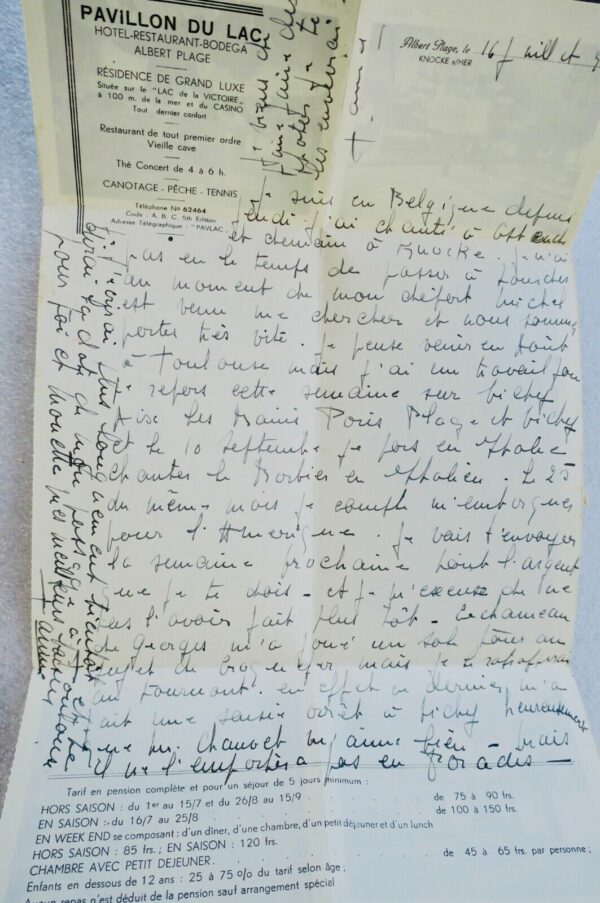 PAVILLON DU LAC
HOTEL-RESTAURANT-BODEGA
ALBERT PLAGE
RÉSIDENCE DE GRAND LUXE
Située sur le "LAC de la VICTOIRE"
à 100 m. de la mer et du CASINO
Tout dernier confort
Restaurant de tout premier ordre
Vieille cave
Thé Concert de 4 à 6 h.
CANOTAGE - PÊCHE - TENNIS
Téléphone No 62464
Code : A, B, C. 5th Edition
Adresse Télégraphique : "PAVLAC"
Albert Plage, le 16 Juillet
KNOCKE s/MER
Je viens de
faire des
photos je te
les enverrai
Je suis en Belgique depuis
jeudi. j'ai chanté à Ostende
et demain à Knocke. Je n'ai
pas eu le temps de passer à
au moment de mon départ Michel
est venu me chercher et nous sommes
partis très vite. Je pense venir en Août
à Toulouse mais j'ai un travail fou
je repars cette semaine sur Vichy
Aix les Bains Paris Plage et Vichy
et le 10 septembre je pars en Italie
chanter le Barbier en Italien. Le 25
du même mois je compte m'embarquer
pour l'Amérique. Je vais t'envoyer
la semaine prochaine tout l'argent
que je te dois - et je m'excuse de ne
pas l'avoir fait plus tôt - Le chameau
de Georges m'a joué un sale tour au
sujet de mais je le rattraperai
au tournant. en effet ce dernier m'a
fait une saisie arrêt à Vichy heureusement
que Mr. Chauvet m'aime bien - mais
il ne l'emportera pas en Paradis -
Je t'écrirai plus longuement bientôt
dirai la date de mon passage à Toulouse
pour toi et Mouette mes meilleurs
Tarif en pension complète et pour un séjour de 5 jours minimum :
HORS SAISON : du 1er au 15/7 et du 26/8 au 15/9 . . . de 75 à 90 frs.
EN SAISON : du 16/7 au 25/8 . . . de 100 à 150 frs.
EN WEEK END se composant : d'un dîner, d'une chambre, d'un petit déjeuner et d'un lunch
HORS SAISON : 85 frs ; EN SAISON : 120 frs.
CHAMBRE AVEC PETIT DEJEUNER. . . . de 45 à 65 frs. par personne ;
Enfants en dessous de 12 ans : 25 à 75 o/o du tarif selon âge ;
Aucun repas n'est déduit de la pension sauf arrangement spécial